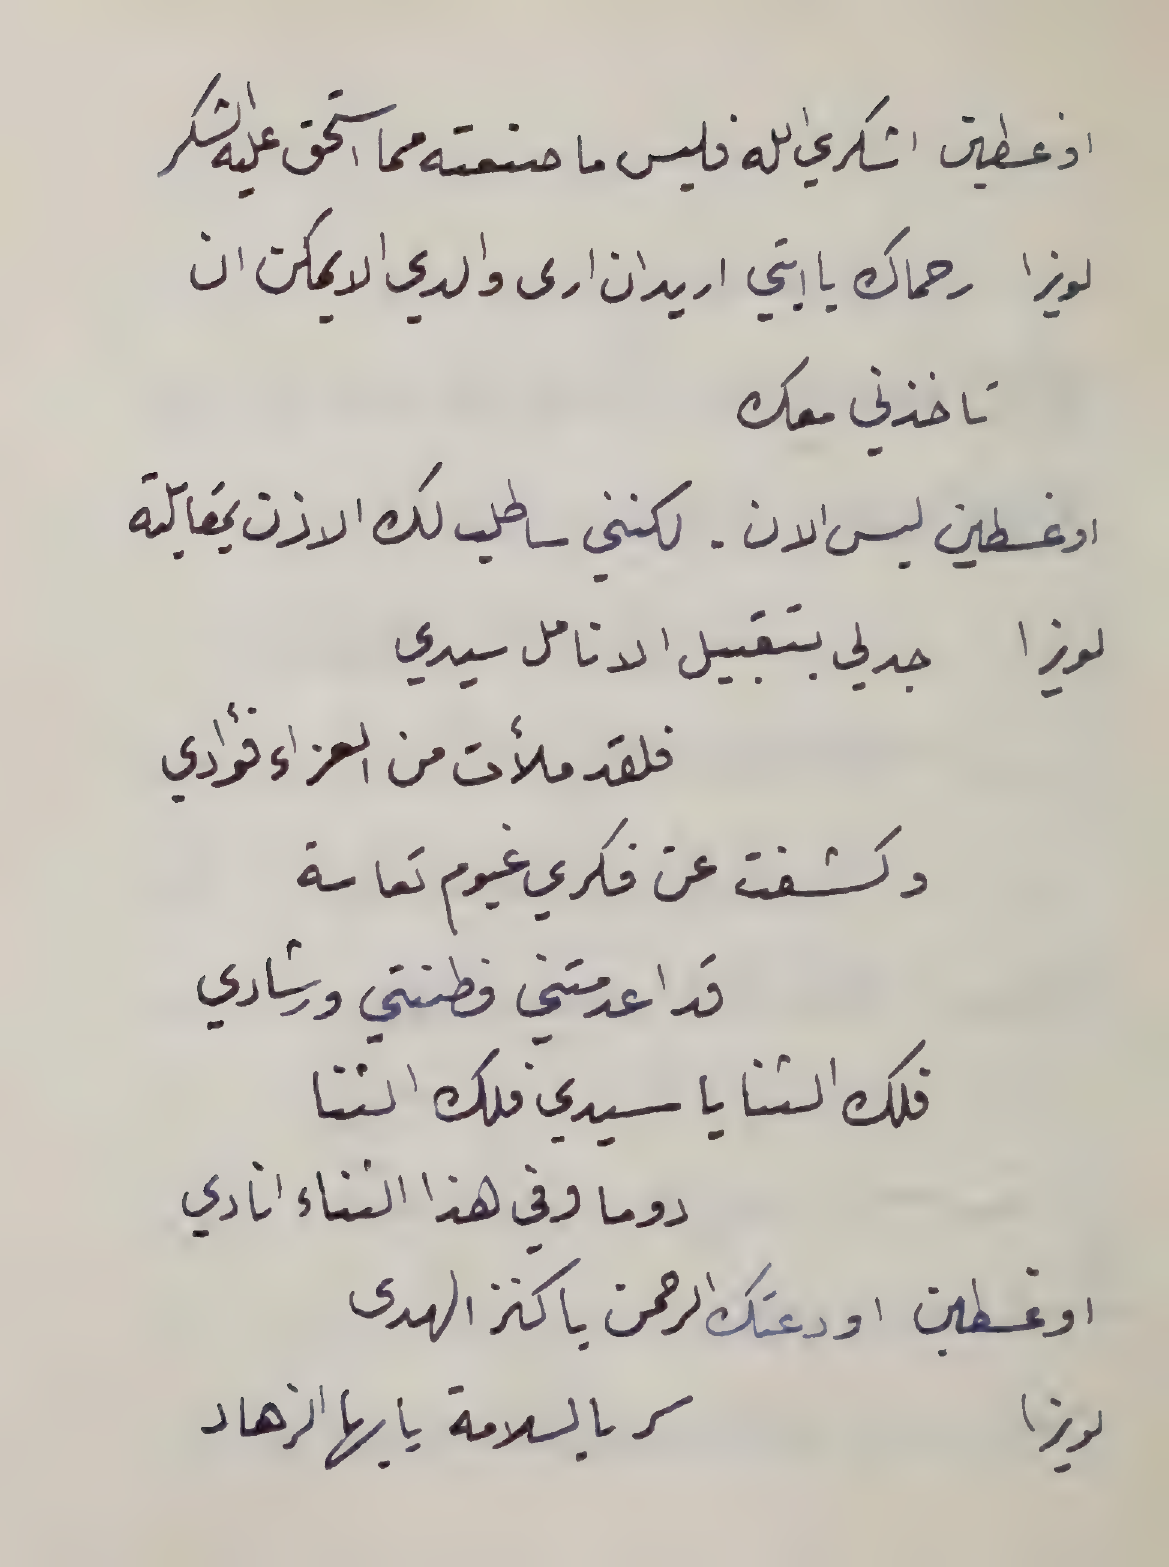 اوغسطين اشكري الله فليس ما صنعته مما استحق عليه الشكر
لويزا رحماك يا ابتي اريد ان ارى والدي الا يمكن ان
تاخذني معك
اوغسطين ليس الان . لكنني ساطلب لك الاذن بمقابلته
لويزا جد لي بتقبيل الانامل سيدي
فلقد ملأت من العزاء فؤادي
وكشفت عن فكري غيوم تعاسة
قد اعدمتني فطنتي ورشادي
فلك الثنا يا سيدي فلك الثنا
دوما وفي هذا الثناء انادي
اوغسطين اودعتك الرحمن يا كنز الهدى
لويزا سر بالسلامة يا بها الزهاد